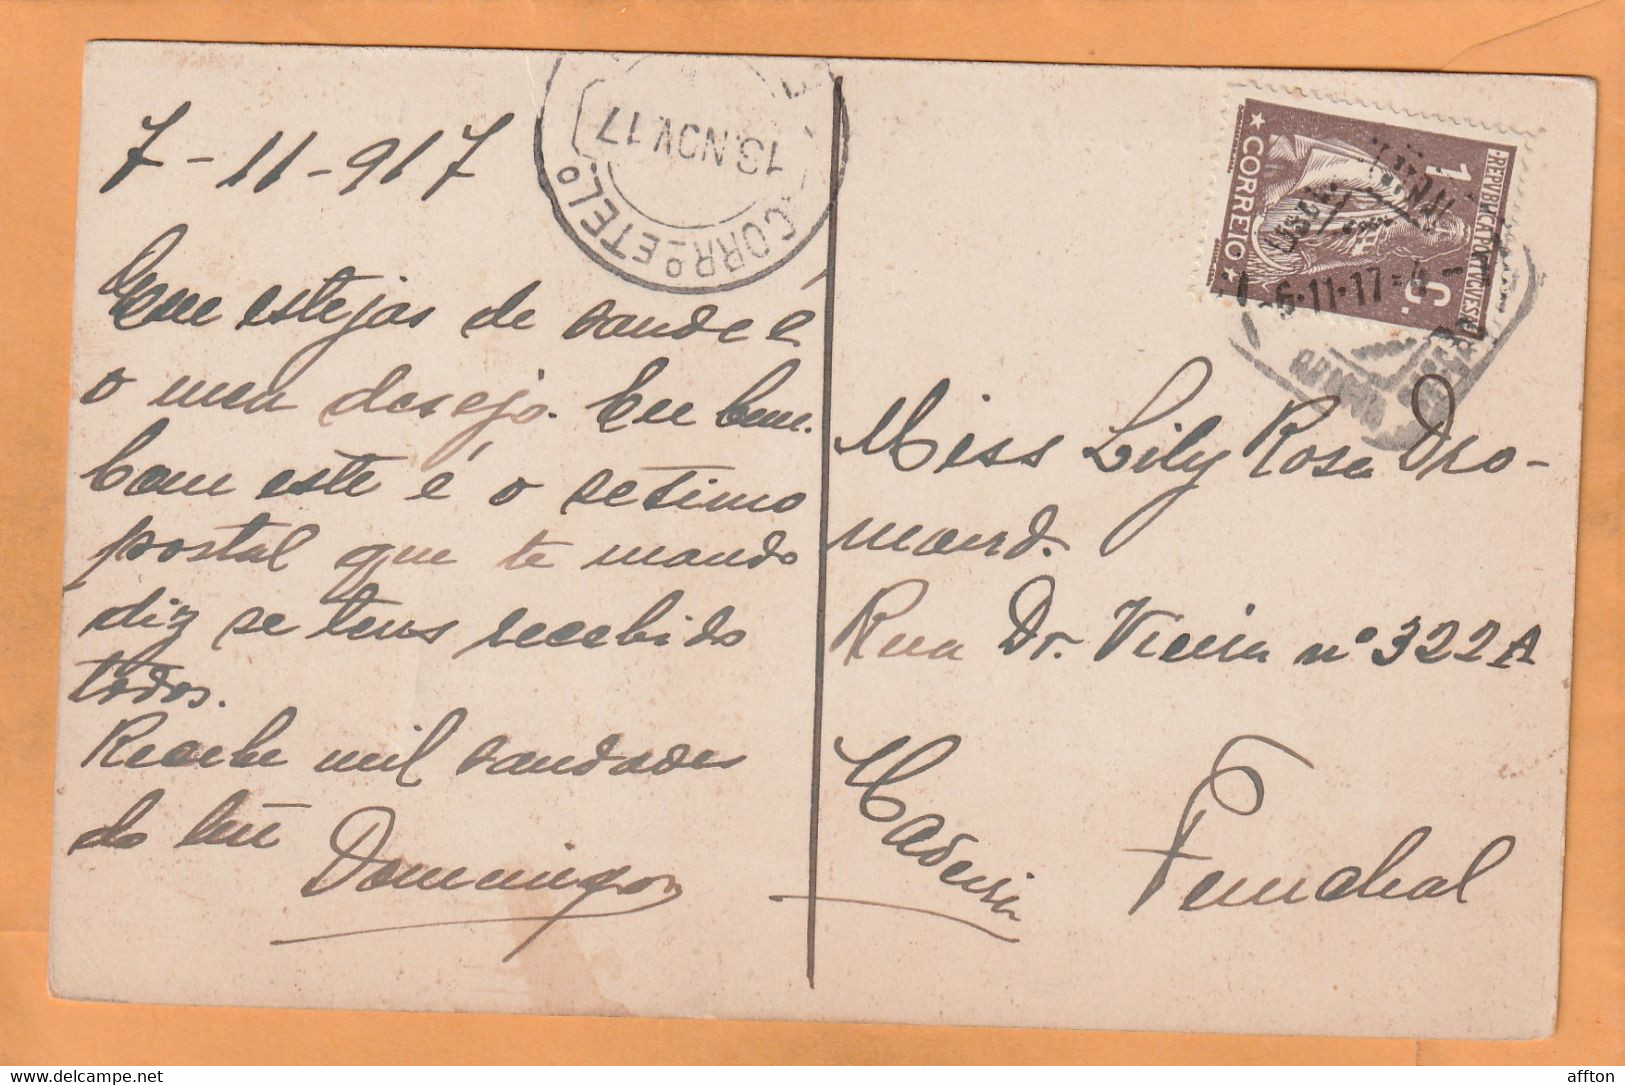 7-11-917
Que estejas de saude é
o meu desejo. Eu bem.
Com este é o setimo
postal que te mando
diz se tens recebido
todos.
Recebe mil saudades
do teu
Domingos
CORRº E TELº
13 NOV. 17
REPVBLICA PORTVGVESA
1 C.
CORREIO
6·11·17-4
Miss Lily Rosa Dro-
mond.
Rua Dr. Vieira nº 322A
Madeira
Funchal
affton